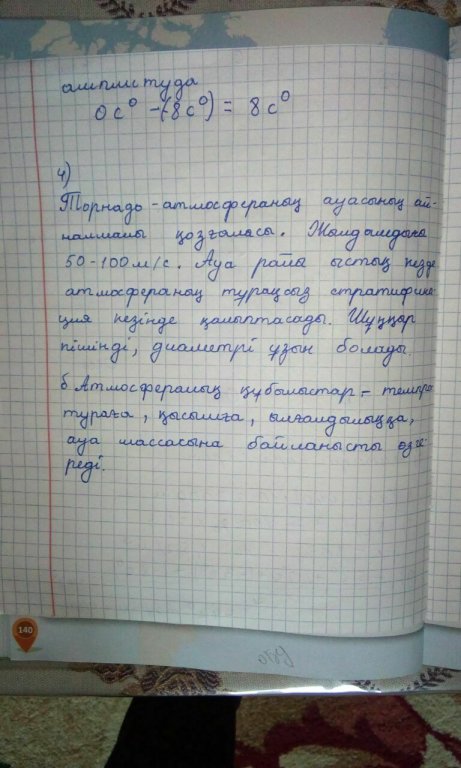 амплитуда
0 c° - (-8 c°) = 8 c°
4)
Торнадо - атмосфераның ауасының ай-
налмалы қозғаласы. Жылдамдығы
50-100 м/с. Ауа райы ыстық кезде
атмосфераның тұрақсыз стратифика-
ция кезінде қалыптасады. Шұңқыр
пішінді, диаметрі ұзын болады.
б Атмосфералық құбылыстар - темпра-
тураға, қысымға, ылғалдылыққа,
ауа массасына байланысты өзге-
реді.
140